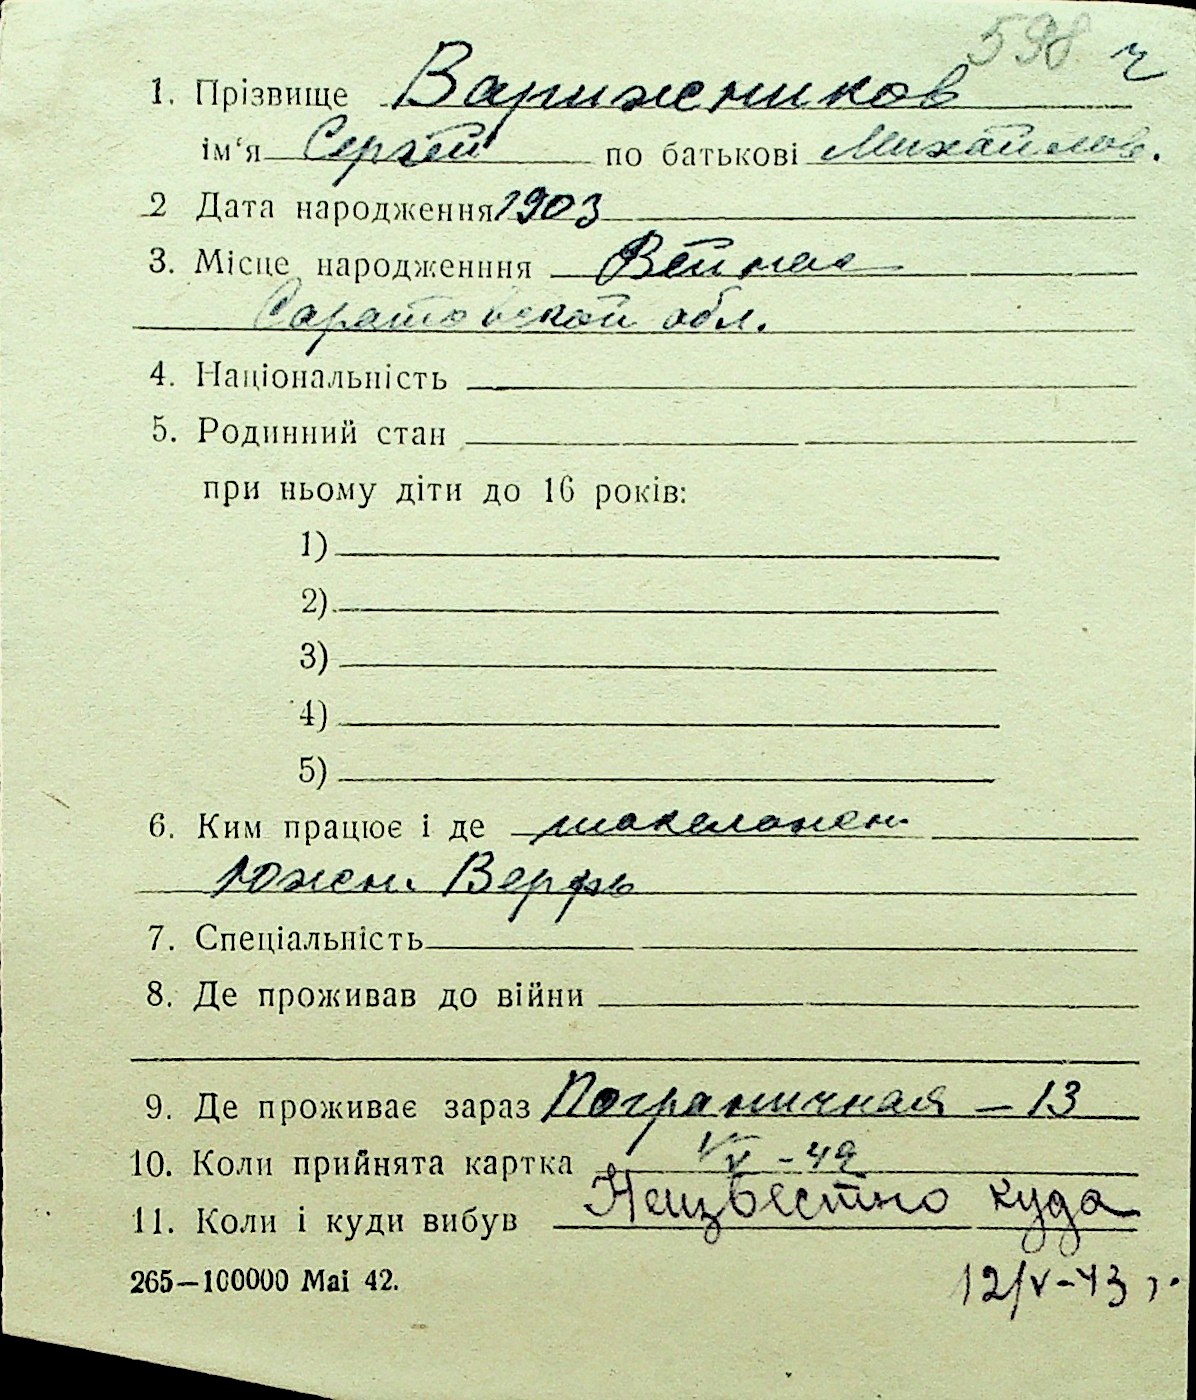 598 ч
1. Прізвище Варижников
ім‘я Сергей по батькові Михайлов.
2 Дата народження 1903
3. Місце народженння
Саратовской обл.
4. Національність
5. Родинний стан
при ньому діти до 16 років:
1)
2)
3)
4)
5)
6. Ким працює і де
Южн. Верфь
7. Спеціальність
8. Де проживав до війни
9. Де проживає зараз Пограничная – 13
10. Коли прийнята картка
11. Коли і куди вибув Неизвестно куда
265–100000 Mai 42. 12/V-43 г.